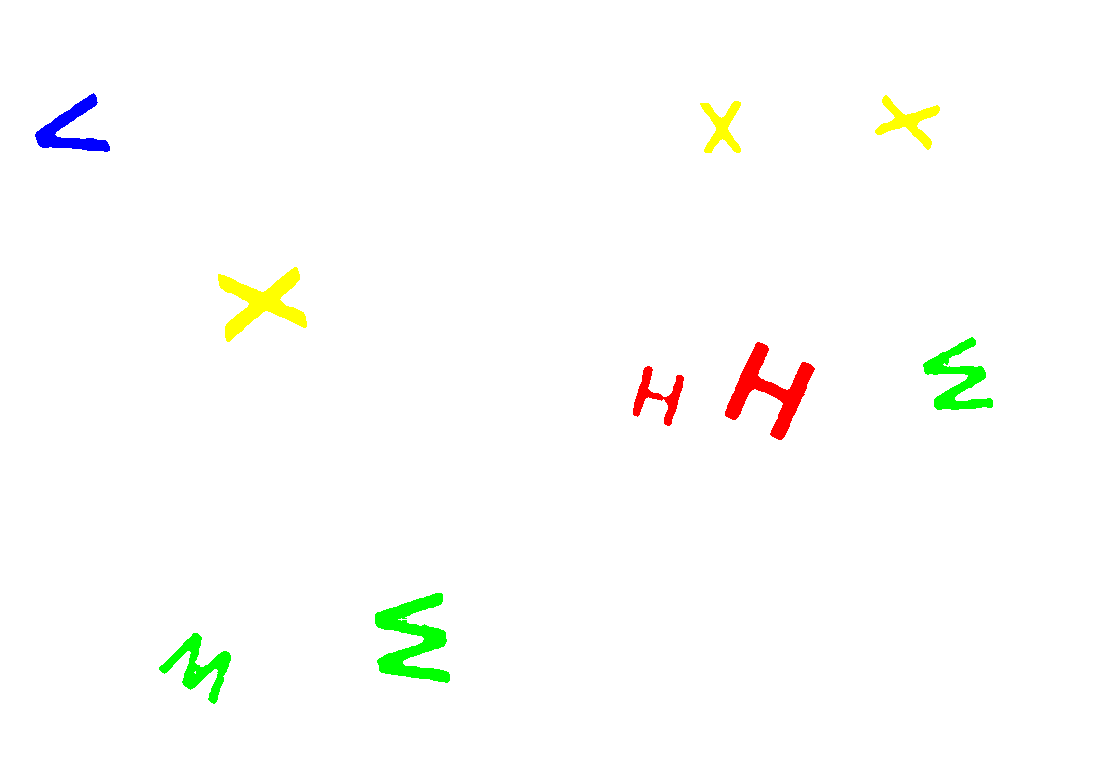 V X X
X
H H M
M M